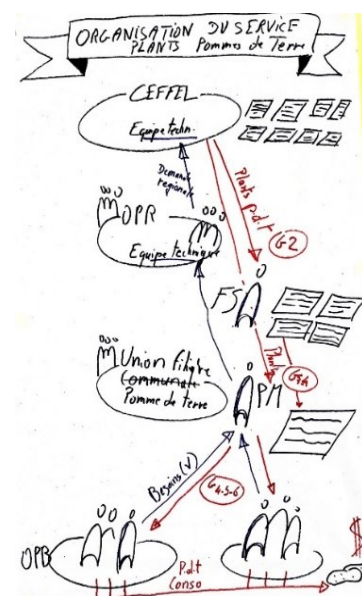 ORGANISATION DU SERVICE
PLANTS Pommes de Terre
CEFFEL
Equipe techn.
Demande
regionale
Plants p.d.t
G2
OPR
Equipe technique
FS
Plants
Union filière
Communale
Pomme de terre
PM
Besoins (V)
G4-5-6
OPB
P.d.t
Conso
$